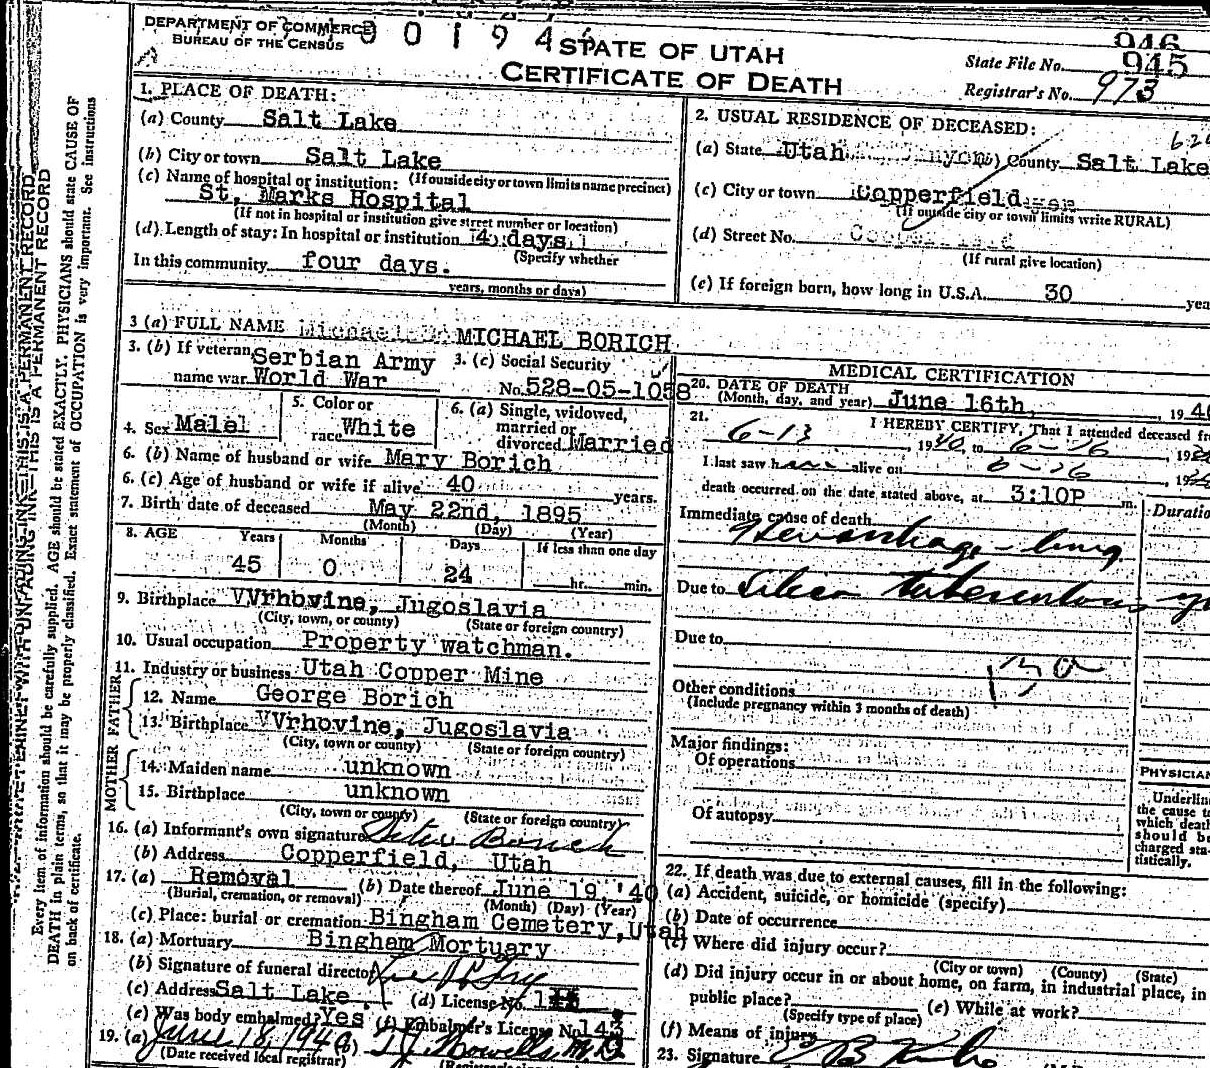 DEPARTMENT OF COMMERCE
BUREAU OF THE CENSUS
STATE OF UTAH
CERTIFICATE OF DEATH
946
State File No. 945
Registrar's No. 973
1. PLACE OF DEATH:
(a) County Salt Lake
(b) City or town Salt Lake
(If outside city or town limits name precinct)
(c) Name of hospital or institution:
St. Marks Hospital
(If not in hospital or institution give street number or location)
(d) Length of stay: In hospital or institution 4 days
(Specify whether
In this community four days.
years, months or days)
2. USUAL RESIDENCE OF DECEASED:
(a) State Utah (b) County Salt Lake
(c) City or town Copperfield
(If outside city or town limits write RURAL)
(d) Street No. Copperfield
(If rural give location)
(e) If foreign born, how long in U.S.A. 30
3 (a) FULL NAME MICHAEL BORICH
3. (b) If veteran, Serbian Army
name war World War
3. (c) Social Security
No. 528-05-1058
4. Sex Male
5. Color or
race White
6. (a) Single, widowed,
married or
divorced Married
6. (b) Name of husband or wife Mary Borich
6. (c) Age of husband or wife if alive 40 years.
7. Birth date of deceased May 22nd, 1895
(Month) (Day) (Year)
8. AGE Years Months Days If less than one day
45 0 24 hr. min.
9. Birthplace VVrhovine, Jugoslavia
(City, town, or county) (State or foreign country)
10. Usual occupation Property watchman.
11. Industry or business Utah Copper Mine
FATHER
12. Name George Borich
13. Birthplace VVrhovine, Jugoslavia
(City, town or county) (State or foreign country)
MOTHER
14. Maiden name unknown
15. Birthplace unknown
(City, town or county) (State or foreign country)
16. (a) Informant's own signature Borich
(b) Address Copperfield, Utah
17. (a) Removal (b) Date thereof June 19, '40
(Burial, cremation, or removal) (Month) (Day) (Year)
(c) Place: burial or cremation Bingham Cemetery, Utah
18. (a) Mortuary Bingham Mortuary
(b) Signature of funeral director
(c) Address Salt Lake (d) License No.
(e) Was body embalmed? Yes (f) Embalmer's License No. 143
19. (a) June 18, 1940
(Date received local registrar)
MEDICAL CERTIFICATION
20. DATE OF DEATH
(Month, day, and year) June 16th, 1940
21. I HEREBY CERTIFY, That I attended deceased
6-13 1940, to 6-16
I last saw alive on
death occurred on the date stated above, at 3:10P m.
Immediate cause of death
Hemorrhage - lung
Due to Silico tuberculous
Due to
Other conditions
(Include pregnancy within 3 months of death)
Major findings:
Of operations
Of autopsy
PHYSICIAN
Underline
the cause to
which death
should be
charged sta-
tistically.
22. If death was due to external causes, fill in the following:
(a) Accident, suicide, or homicide (specify)
(b) Date of occurrence
(c) Where did injury occur?
(City or town) (County) (State)
(d) Did injury occur in or about home, on farm, in industrial place, in
public place? (e) While at work?
(Specify type of place)
(f) Means of injury
23. Signature
WITH UNFADING INK—THIS IS A PERMANENT RECORD
Every item of information should be carefully supplied. AGE should be stated EXACTLY. PHYSICIANS should state CAUSE OF
DEATH in plain terms, so that it may be properly classified. Exact statement of OCCUPATION is very important. See instructions
on back of certificate.